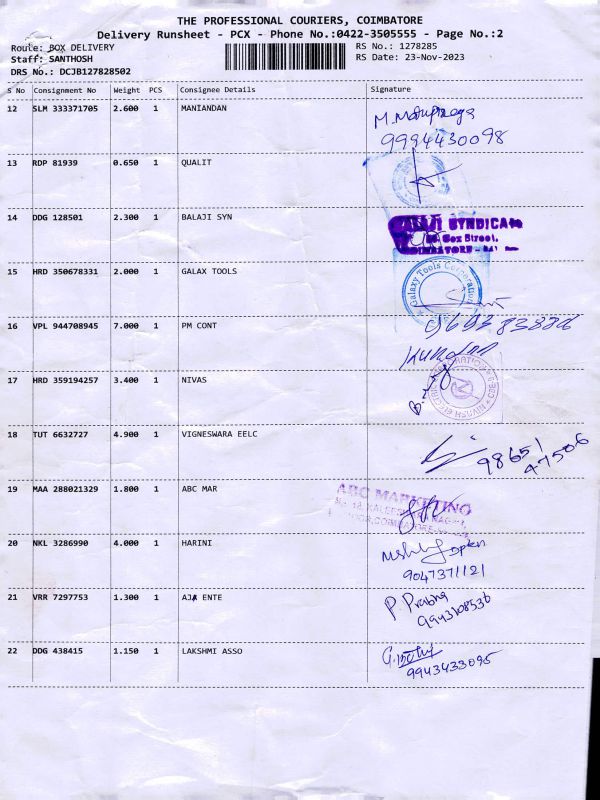 THE PROFESSIONAL COURIERS, COIMBATORE
Delivery Runsheet - PCX - Phone No.:0422-3505555 - Page No.:2
Route: BOX DELIVERY RS No.: 1278285
Staff: SANTHOSH RS Date: 23-Nov-2023
DRS No.: DCJB127828502
S No Consignment No Weight PCS Consignee Details Signature
12 SLM 333371705 2.600 1 MANIANDAN
9994430098
13 RDP 81939 0.650 1 QUALIT
14 DDG 128501 2.300 1 BALAJI SYN
SYNDICA
Street,
15 HRD 350678331 2.000 1 GALAX TOOLS
Galaxy Tools Corporation
16 VPL 944708945 7.000 1 PM CONT
17 HRD 359194257 3.400 1 NIVAS
18 TUT 6632727 4.900 1 VIGNESWARA EELC
98651
47506
19 MAA 288021329 1.800 1 ABC MAR
ABC MARKETING
20 NKL 3286990 4.000 1 HARINI
9047371121
21 VRR 7297753 1.300 1 AJA ENTE
P. Prabha
9943108536
22 DDG 438415 1.150 1 LAKSHMI ASSO
9943433095